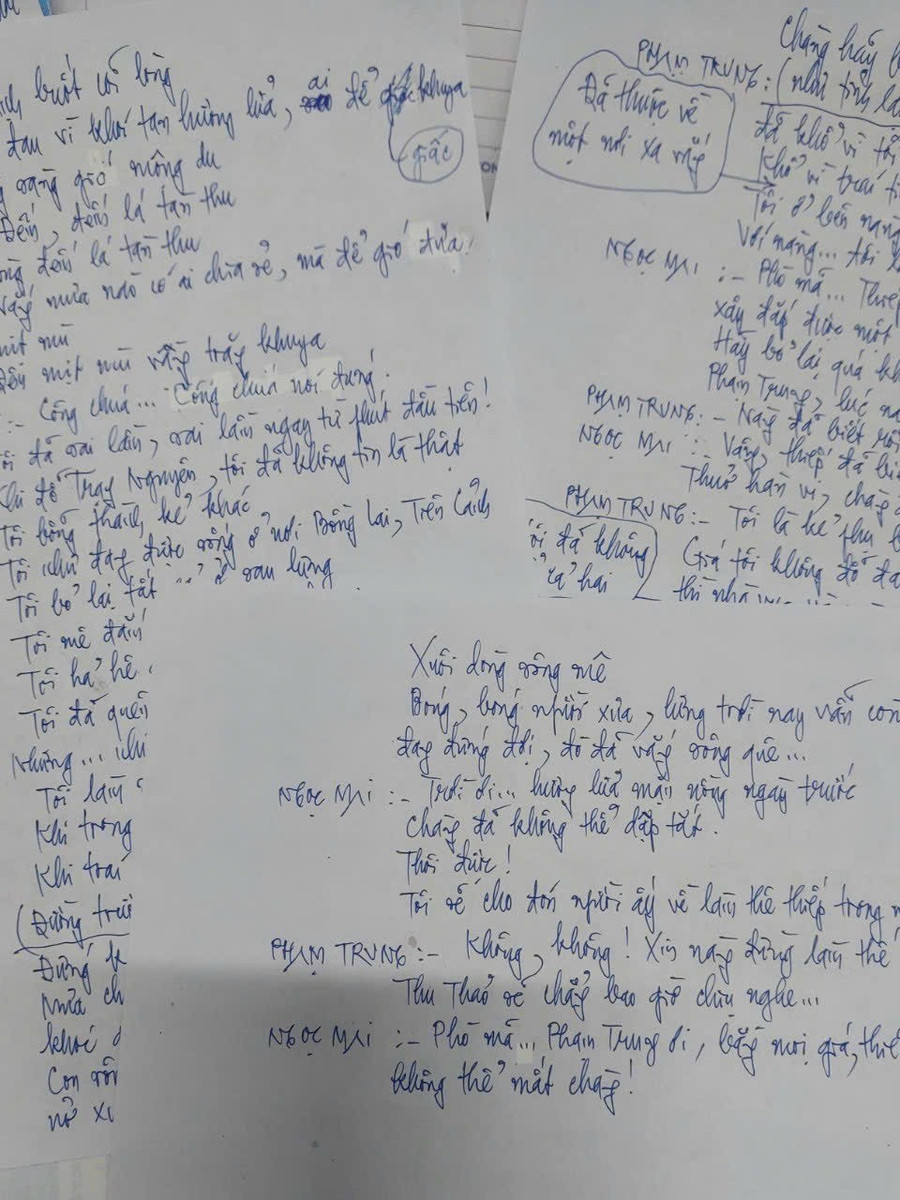 buốt cõi lòng
đau vì khói tan hương lửa, ai để khuya
giấc
gió mông du
Đến, đến lá tàn thu
đến lá tàn thu
nắng mưa nào có ai chia sẻ, mà để gió đưa
mịt mù
Đến mịt mù vầng trăng khuya
:- Công chúa... Công chúa nói đúng.
Tôi đã sai lầm, sai lầm ngay từ phút đầu tiên!
Khi đỗ Trạng Nguyên, tôi đã không tin là thật
Tôi bỗng thành kẻ khác
Tôi như đang được sống ở nơi Bồng Lai, Tiên Cảnh
Tôi bỏ lại tất ở sau lưng
Tôi mê đắm
Tôi hả hê
Tôi đã quên
Nhưng... chỉ
Tôi làm
Khi trong
Khi trái
(Đường trườ
Đừng k
Nửa ch
khóc
Con sôn
nở xu
Chàng hãy
PHẠM TRUNG: (nói tình la
Đã thuộc về
một nơi xa vắng
đã khổ vì tôi
Khổ vì trái ti
Tôi ở bên nàng
Với nàng... tôi l
NGỌC MAI :- Phò mã... Thiếp
xây đắp được một
Hãy bỏ lại quá kh
Phạm Trung, lúc nà
PHẠM TRUNG:- Nàng đã biết rồi
NGỌC MAI :- Vâng, thiếp đã biế
Thuở hàn vi, chàng
PHẠM TRUNG:- Tôi là kẻ phụ b
ôi đã không
cả hai
Giá tôi không đỗ đạ
thì nhà
Xuôi dòng sông mê
Bóng, bóng người xưa, lưng trời nay vẫn còn
đang đứng đợi, đò đã vắng sông quê...
NGỌC MAI :- Trời ơi... hương lửa mặn nồng ngày trước
chàng đã không thể dập tắt.
Thôi được!
Tôi sẽ cho đón người ấy về làm thê thiếp trong
PHẠM TRUNG:- Không, không! Xin nàng đừng làm thế
Thu Thảo sẽ chẳng bao giờ chịu nghe...
NGỌC MAI :- Phò mã... Phạm Trung ơi, bằng mọi giá, thiế
không thể mất chàng!